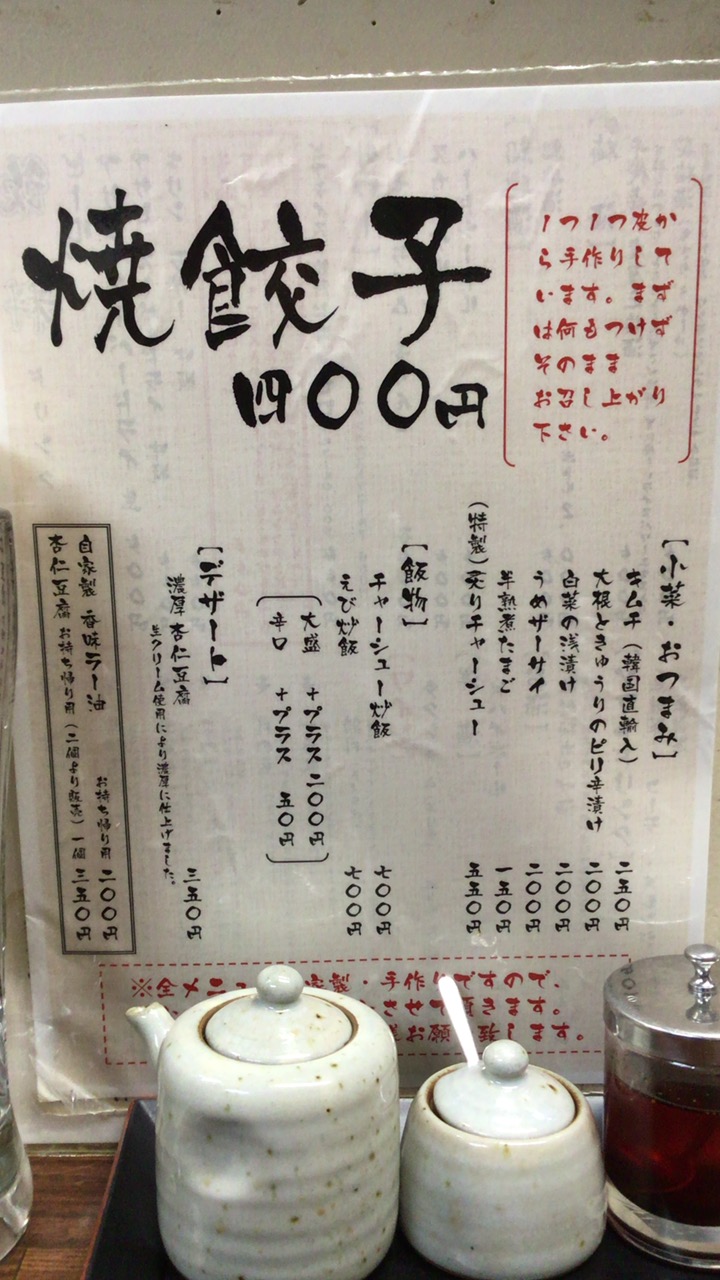 焼餃子
四〇〇円
1つ1つ皮か
ら手作りして
います。まず
は何もつけず
そのまま
お召し上がり
下さい。
【小菜・おつまみ】
キムチ(韓国直輸入) 二五〇円
大根ときゅうりのピリ辛漬け 二〇〇円
白菜の浅漬け 二〇〇円
うめザーサイ 二〇〇円
半熟煮たまご 一五〇円
(特製)炙りチャーシュー 五五〇円
【飯物】
チャーシュー炒飯 七〇〇円
えび炒飯 七〇〇円
大盛 +プラス 二〇〇円
辛口 +プラス 五〇円
【デザート】
濃厚 杏仁豆腐 三五〇円
生クリーム使用により濃厚に仕上げました。
自家製 香味ラー油 お持ち帰り用 二〇〇円
杏仁豆腐 お持ち帰り用(二個より販売)一個 三五〇円
※全メニュ 家製・手作りですので、
させて頂きます。
お願 致します。